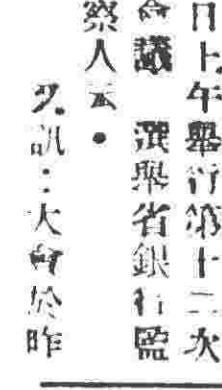 日上午舉行第十二次
會議　選舉省銀行監
察人云・
又訊：大會於昨